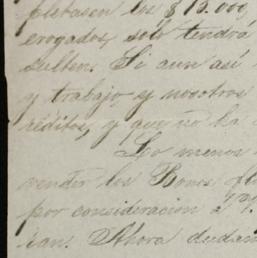 pletasen los $15.000,
erogados, solo tendrá
sulten. Si aun así
y trabajo, y nosotros
réditos, y que no ha
Lo menos
vender los Bonos
por consideracion á
ian. Ahora dudam